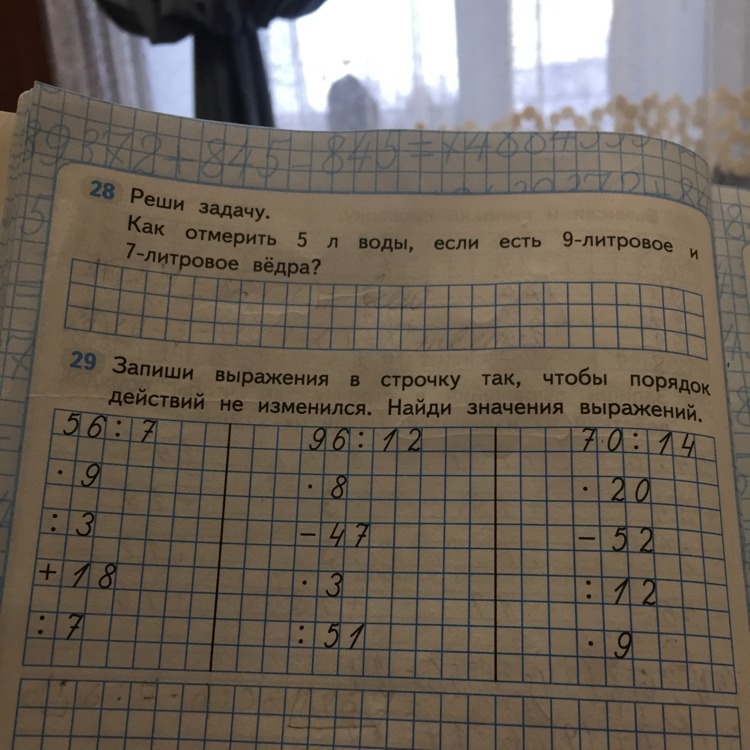 9372+845-845=
28 Реши задачу.
Как отмерить 5 л воды, если есть 9-литровое и
7-литровое вёдра?
29 Запиши выражения в строчку так, чтобы порядок
действий не изменился. Найди значения выражений.
56:7 96:12 70:14
·9 ·8 ·20
:3 -47 -52
+18 ·3 :12
:7 :51 ·9